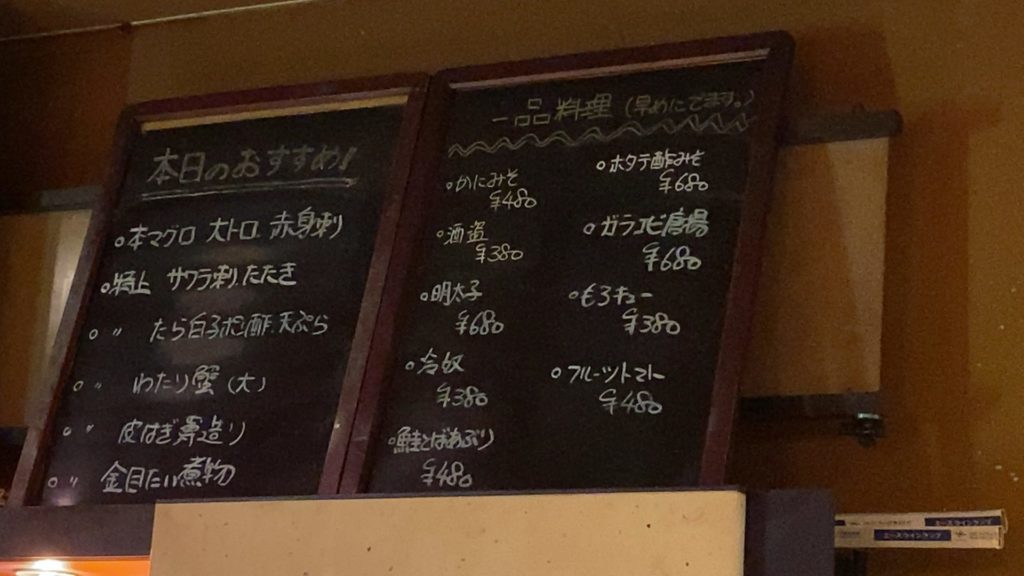 本日のおすすめ!
○本マグロ 大トロ、赤身刺
○特上 サワラ刺.たたき
○ 〃 たら白子ポン酢.天ぷら
○ 〃 わたり蟹(大)
○ 〃 皮はぎ薄造り
○ 〃 金目たい煮物
一品料理(早めにでます。)
○かにみそ
¥480
○酒盗
¥380
○明太子
¥680
○冷奴
¥380
○鮭とばあぶり
¥480
○ホタテ酢みそ
¥680
○ガラエビ唐揚
¥680
○もろキュー
¥380
○フルーツトマト
¥480
エースラインランプ
エースラインランプ